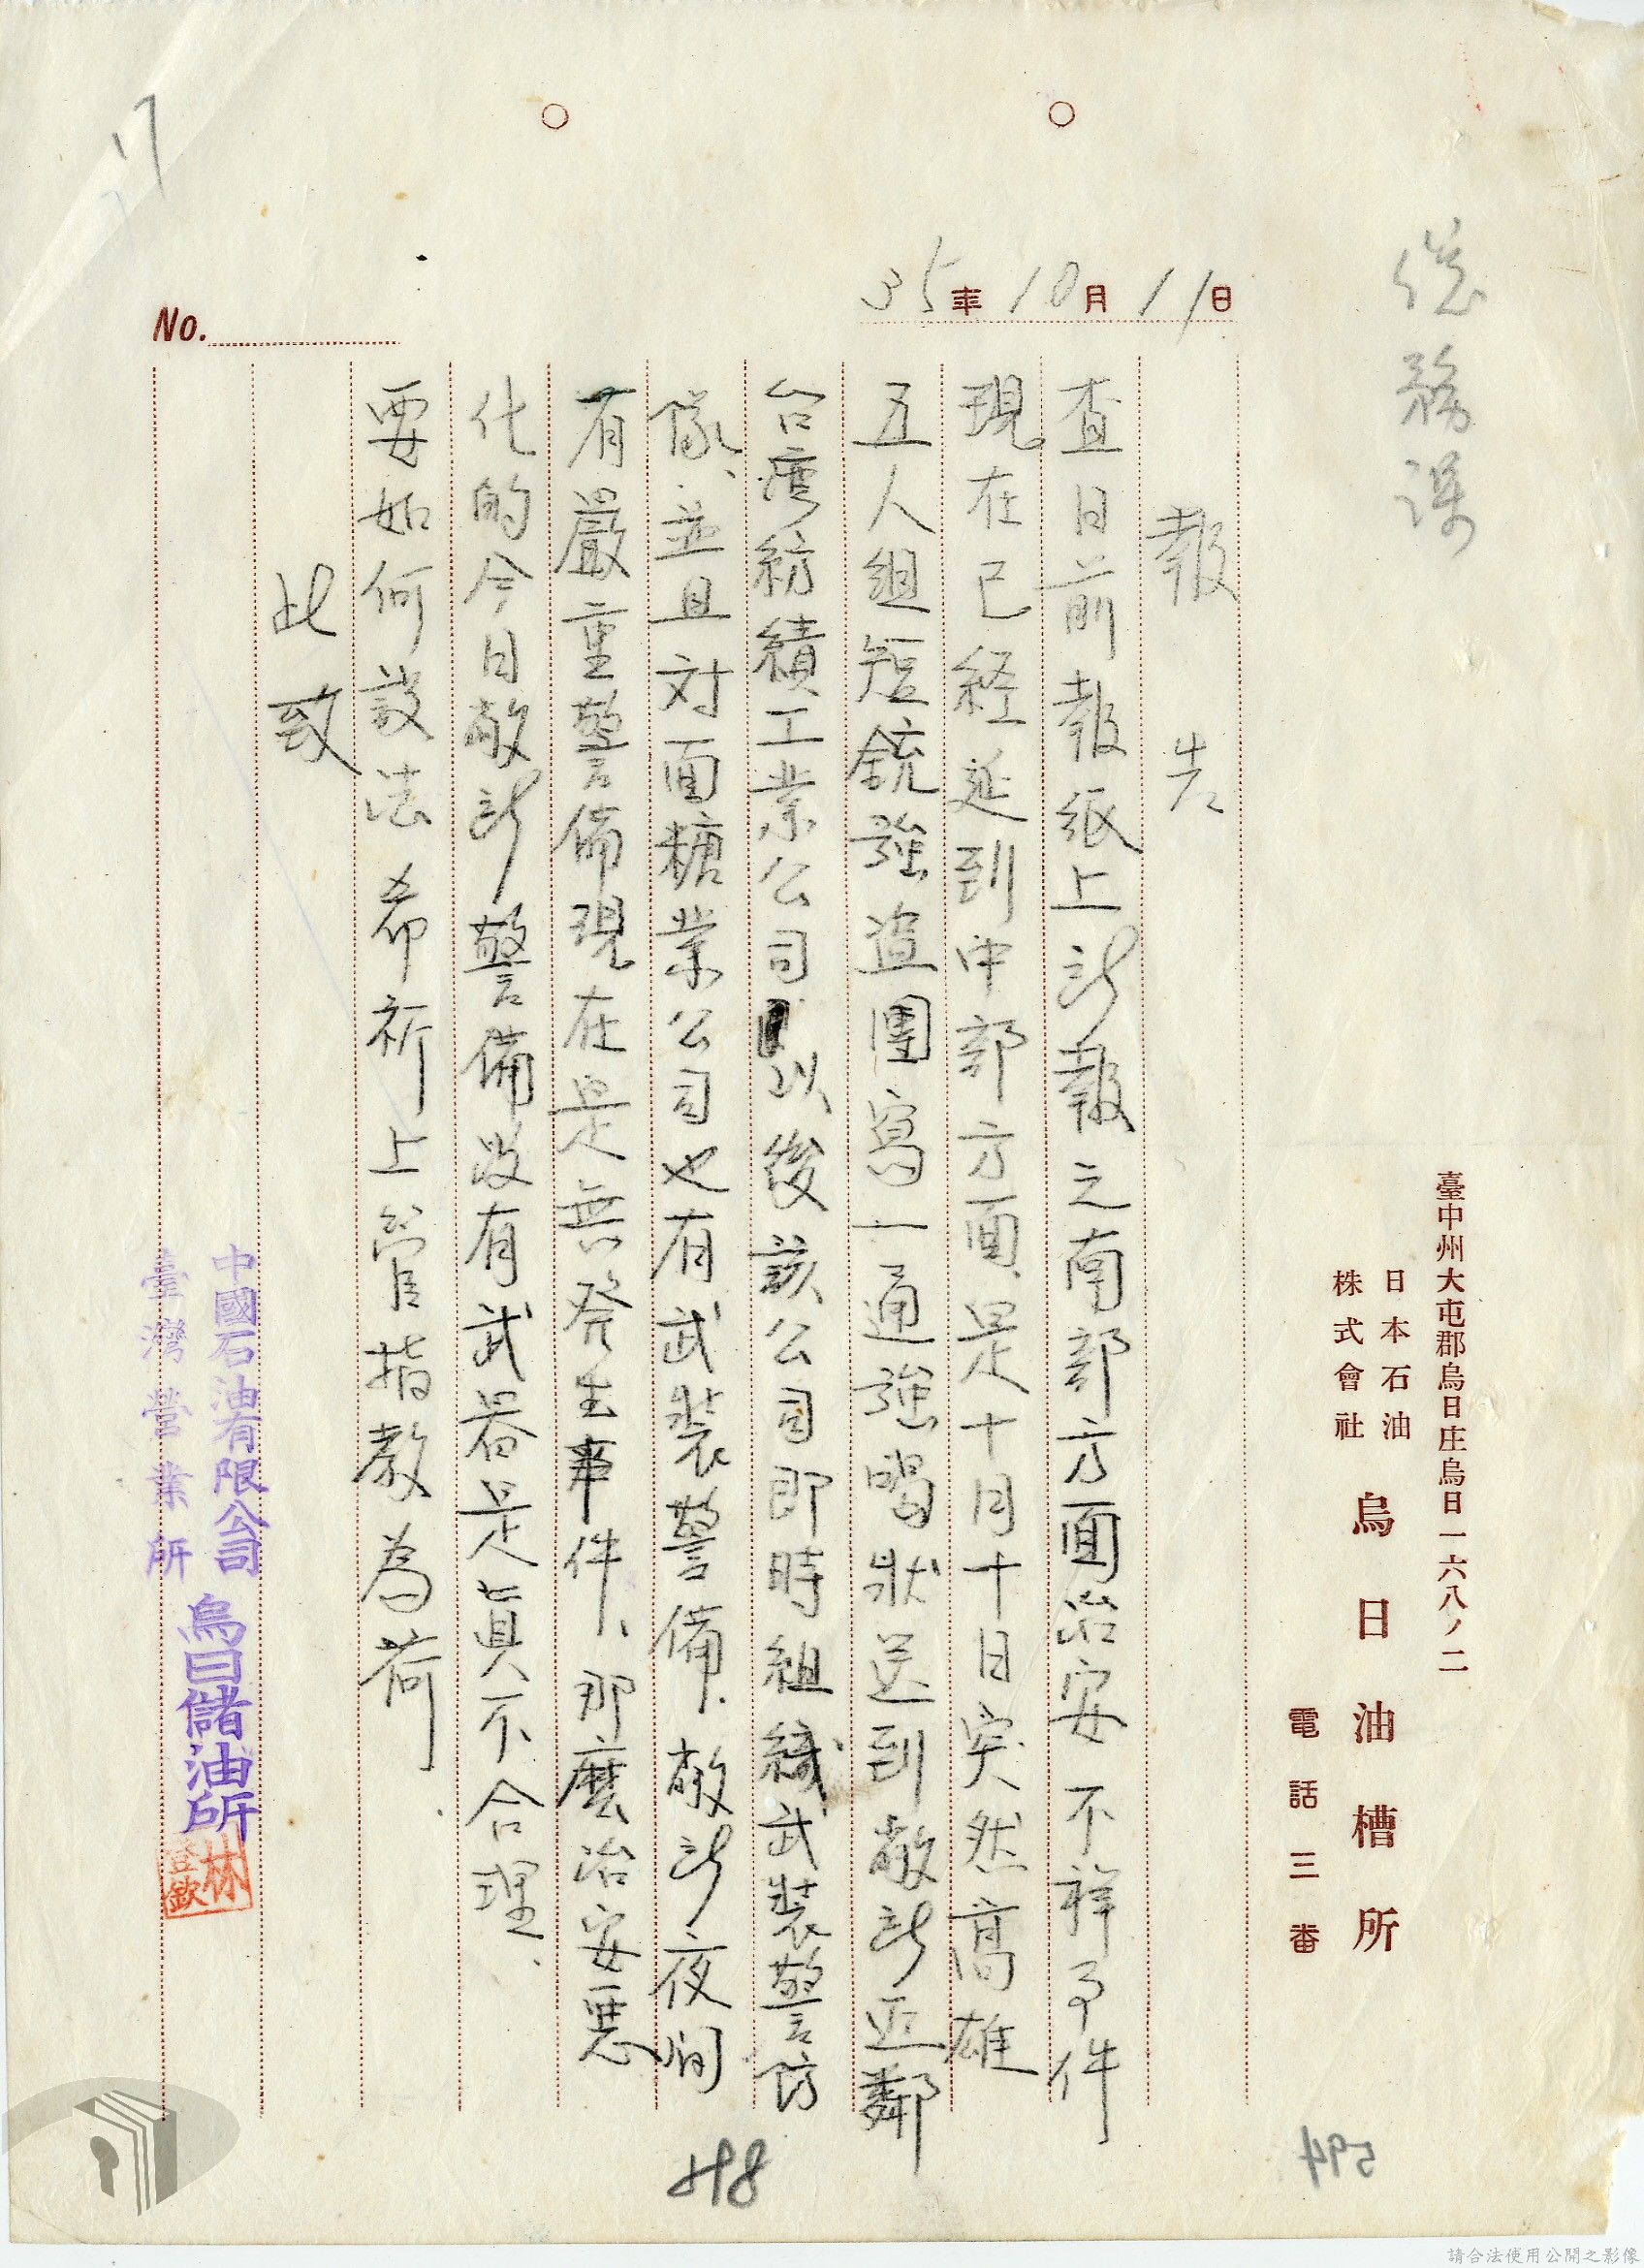 總務課
臺中州大屯郡烏日庄烏日一六八ノ二
日本石油
株式會社
烏日油槽所
電話三番
35年10月11日
No.
報告
查日前報紙上所報之南部方面治安不祥事件
現在已経延到中部方面、是十月十日突然高雄
五人組短銃強盜團寫一通強喝狀送到敝所近鄰
台灣紡績工業公司以後該公司即時組織武裝警防
隊、並且对面糖業公司也有武裝警備、敝所夜间
有嚴重警備現在是無發生事件、那麼治安惡
化的今日敝所警備沒有武器是真不合理、
要如何設法希祈上管指教為荷
此致
中國石油有限公司
臺灣營業所
烏日儲油所
林登欽
488
594
請合法使用公開之影像